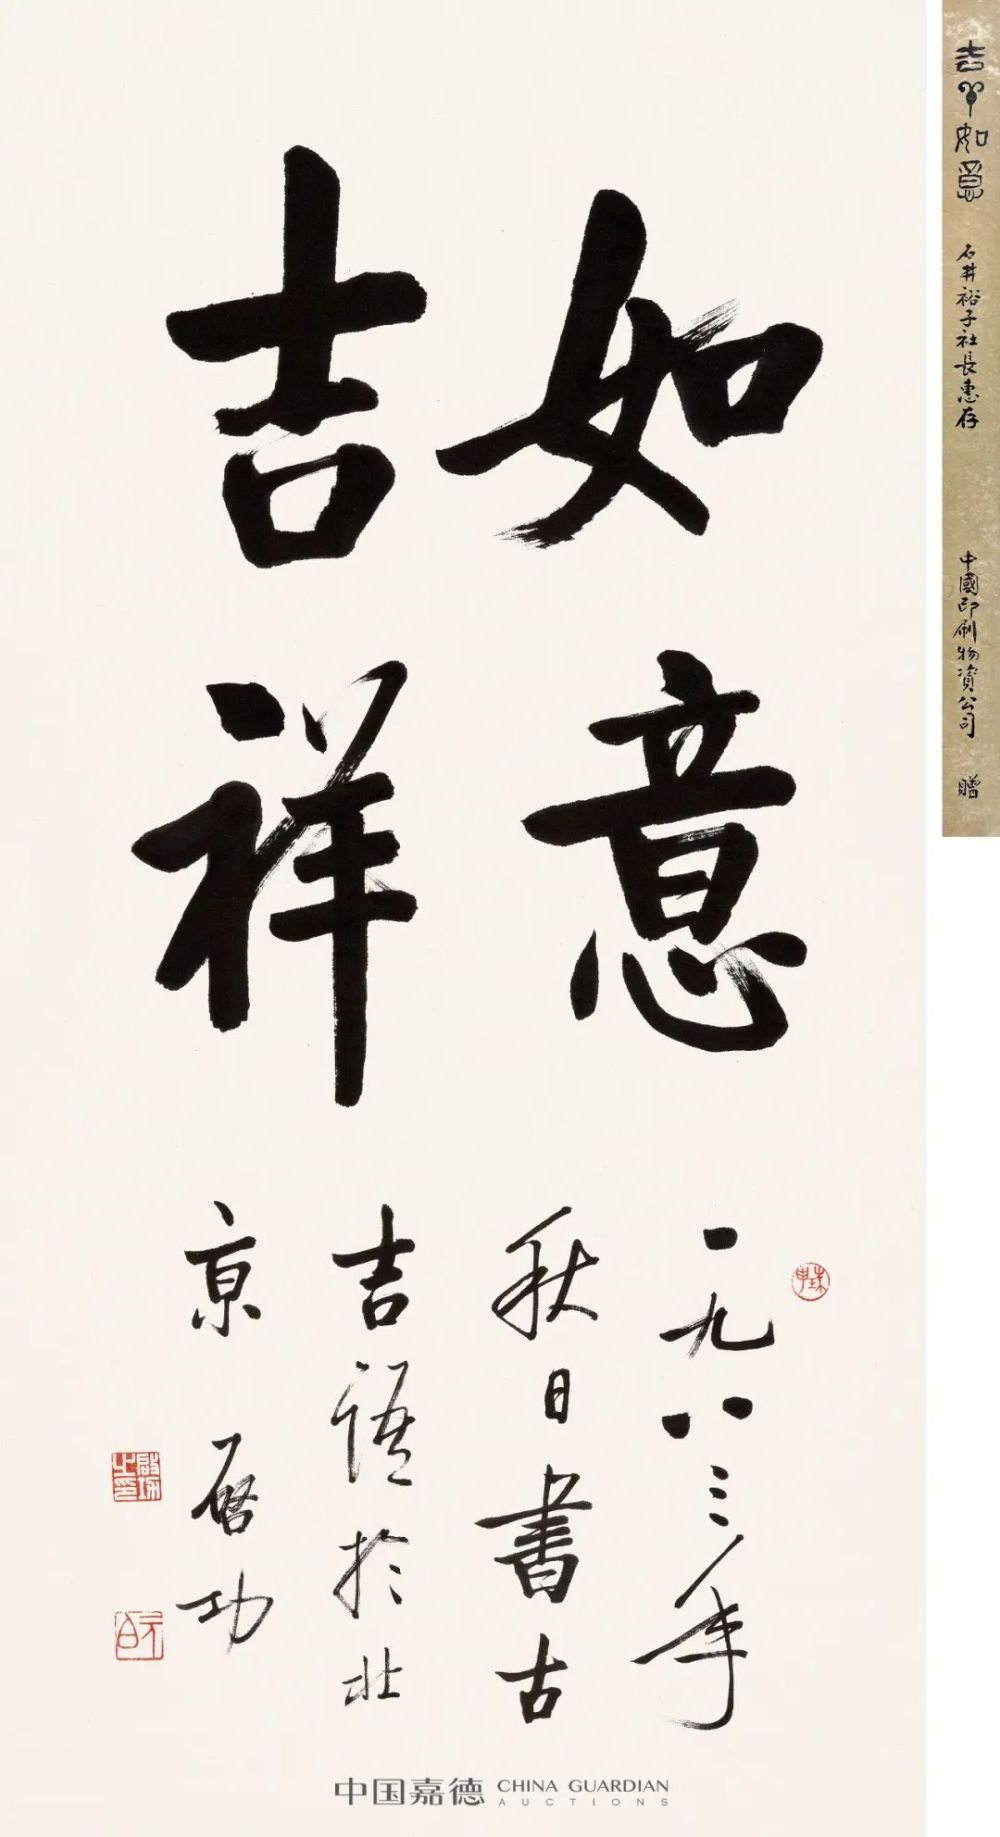 如意
吉祥
一九八三年
秋日書古
吉語於北
京 启功
啟功之印
元白
吉羊如意 石井裕子社長惠存 中國印刷物資公司 贈
中国嘉德 CHINA GUARDIAN
AUCTIONS